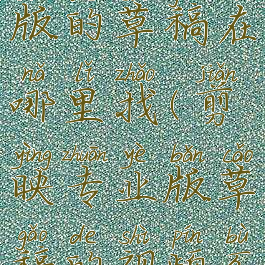 版的草稿在
nǎ lǐ zhǎo jiǎn
哪里找(剪
yìng zhuān yè bǎn cǎo
映专业版草
gǎo de shì pín bù
稿的视频不